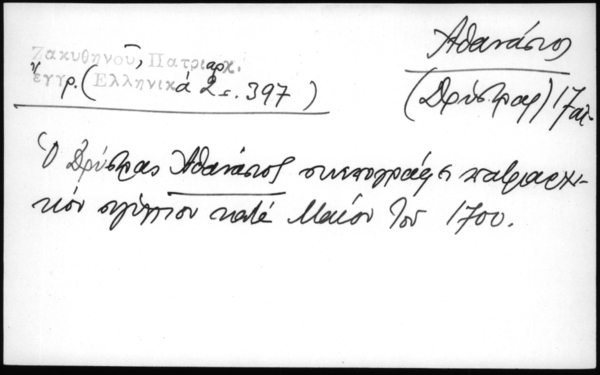 Ζακυθηνοῦ, Πατριαρχ.
ἔγγρ. (Ἑλληνικά 2 σ. 397)
Ἀθανάσιος
(Δρύστρας) 17 αἰ.
Ὁ Δρύστρας Ἀθανάσιος συνυπογράφει πατριαρχι-
κόν σιγίλλιον κατά Μαΐον τοῦ 1700.